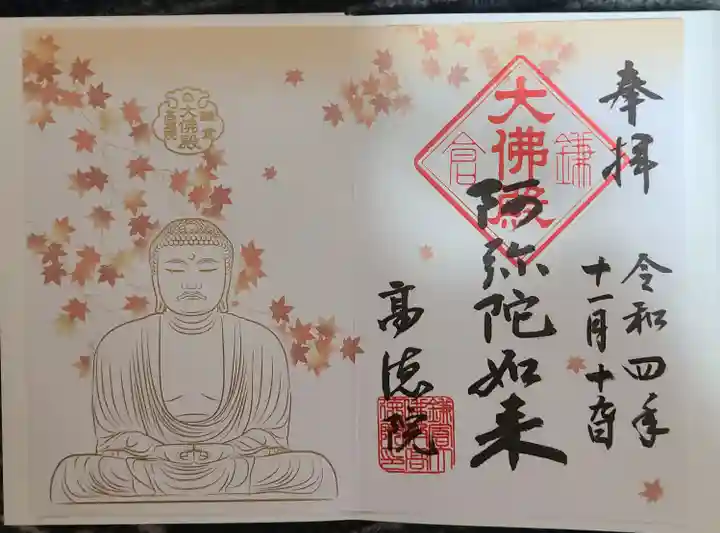 奉拝
令和四年
十一月十
大佛殿
鎌倉
阿弥陀如来
高徳院
大佛殿